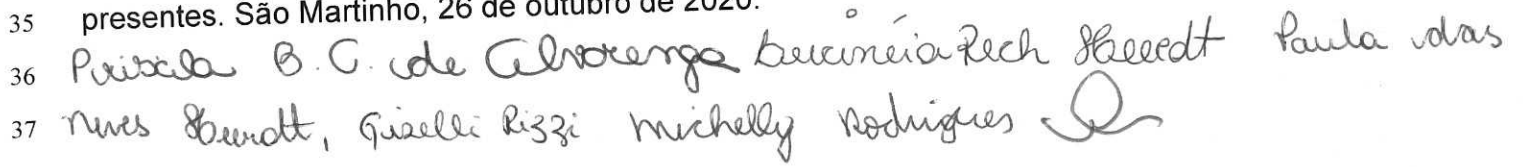 35 presentes. São Martinho, 26 de outubro de 2020.
36 Priscila B. C. de Alvarenga Lucinéia Rech Heerdt Paula das
37 Neves Heerdt, Giselli Rizzi Michelly Rodrigues